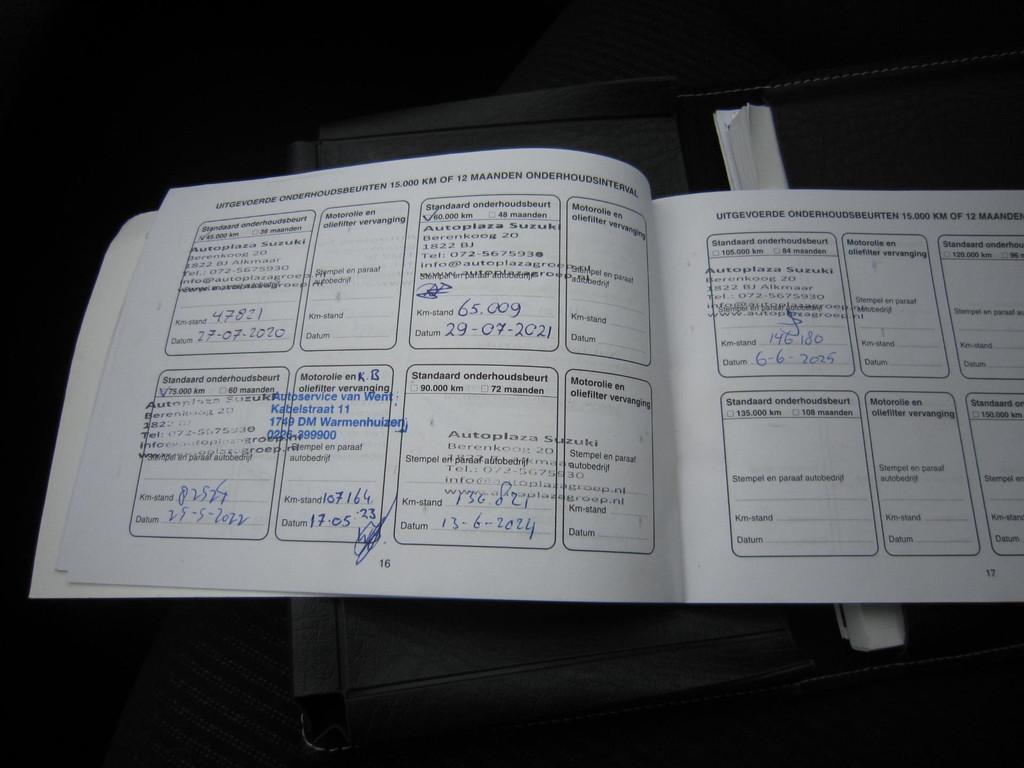 UITGEVOERDE ONDERHOUDSBEURTEN 15.000 KM OF 12 MAANDEN ONDERHOUDSINTERVAL
Standaard onderhoudsbeurt
45.000 km 36 maanden
Autoplaza Suzuki
Berenkoog 20
1822 BJ Alkmaar
Tel.: 072-5675930
info@autoplazagroep.nl
Km-stand 47821
Datum 27-07-2020
Motorolie en
oliefilter vervanging
Stempel en paraaf
autobedrijf
Km-stand
Datum
Standaard onderhoudsbeurt
60.000 km 48 maanden
Autoplaza Suzuki
Berenkoog 20
1822 BJ
Tel: 072-5675930
info@autoplazagroep.nl
www.autoplazagroep.nl
Km-stand 65.009
Datum 29-07-2021
Motorolie en
oliefilter vervanging
Stempel en paraaf
autobedrijf
Km-stand
Datum
Standaard onderhoudsbeurt
75.000 km 60 maanden
Autoplaza Suzuki
Berenkoog 20
Tel: 072-5675930
info@autoplazagroep.nl
Stempel en paraaf autobedrijf
Km-stand
Datum 25-5-2022
Motorolie en K.B
oliefilter vervanging
Autoservice van Went
Kabelstraat 11
1749 DM Warmenhuizen
0226-399900
Stempel en paraaf
autobedrijf
Km-stand 107164
Datum 17-05-'23
Standaard onderhoudsbeurt
90.000 km 72 maanden
Autoplaza Suzuki
Berenkoog 20
Stempel en paraaf autobedrijf
1822 BJ Alkmaar
Tel.: 072-5675930
info@autoplazagroep.nl
www.autoplazagroep.nl
Km-stand 130.821
Datum 13-6-2024
Motorolie en
oliefilter vervanging
Stempel en paraaf
autobedrijf
Km-stand
Datum
16
UITGEVOERDE ONDERHOUDSBEURTEN 15.000 KM OF 12 MAANDEN
Standaard onderhoudsbeurt
105.000 km 84 maanden
Autoplaza Suzuki
Berenkoog 20
1822 BJ Alkmaar
Tel.: 072-5675930
info@autoplazagroep.nl
www.autoplazagroep.nl
Km-stand 146180
Datum 6-6-2025
Motorolie en
oliefilter vervanging
Stempel en paraaf
autobedrijf
Km-stand
Datum
Standaard onderhou
120.000 km 96 m
Stempel en paraaf au
Km-stand
Datum
Standaard onderhoudsbeurt
135.000 km 108 maanden
Stempel en paraaf autobedrijf
Km-stand
Datum
Motorolie en
oliefilter vervanging
Stempel en paraaf
autobedrijf
Km-stand
Datum
Standaard on
150.000 km
Stempel en para
Km-stand
Datum
17